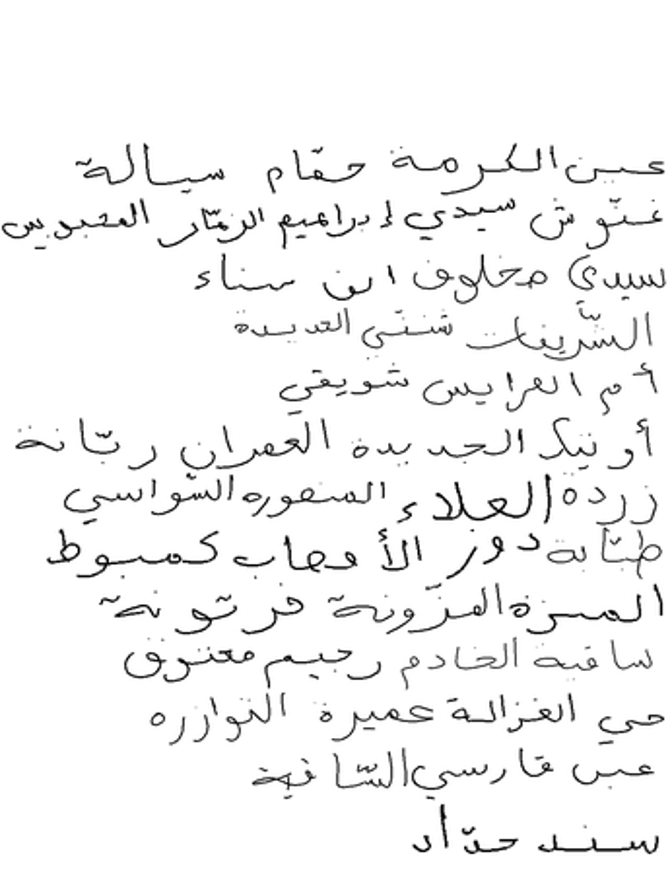 عين الكرمة حمّام سيالة
غنّوش سيدي إبراهيم الزهّار المتبويس
سيدي مخلوف ابن سناء
الشّريفات شنني الجديدة
أم العرايس شويقي
أونيك الجديدة العمران ربّانة
زردة العلاء المنصورة السّواسي
طبّابة دوز الأوهاب كمبوط
المنزه المزّونة فرتونة
ساقية الخادم رجيم معتوق
حي الغزالة عميرة التوازره
عين قارسي السّافية
سند حدّاد